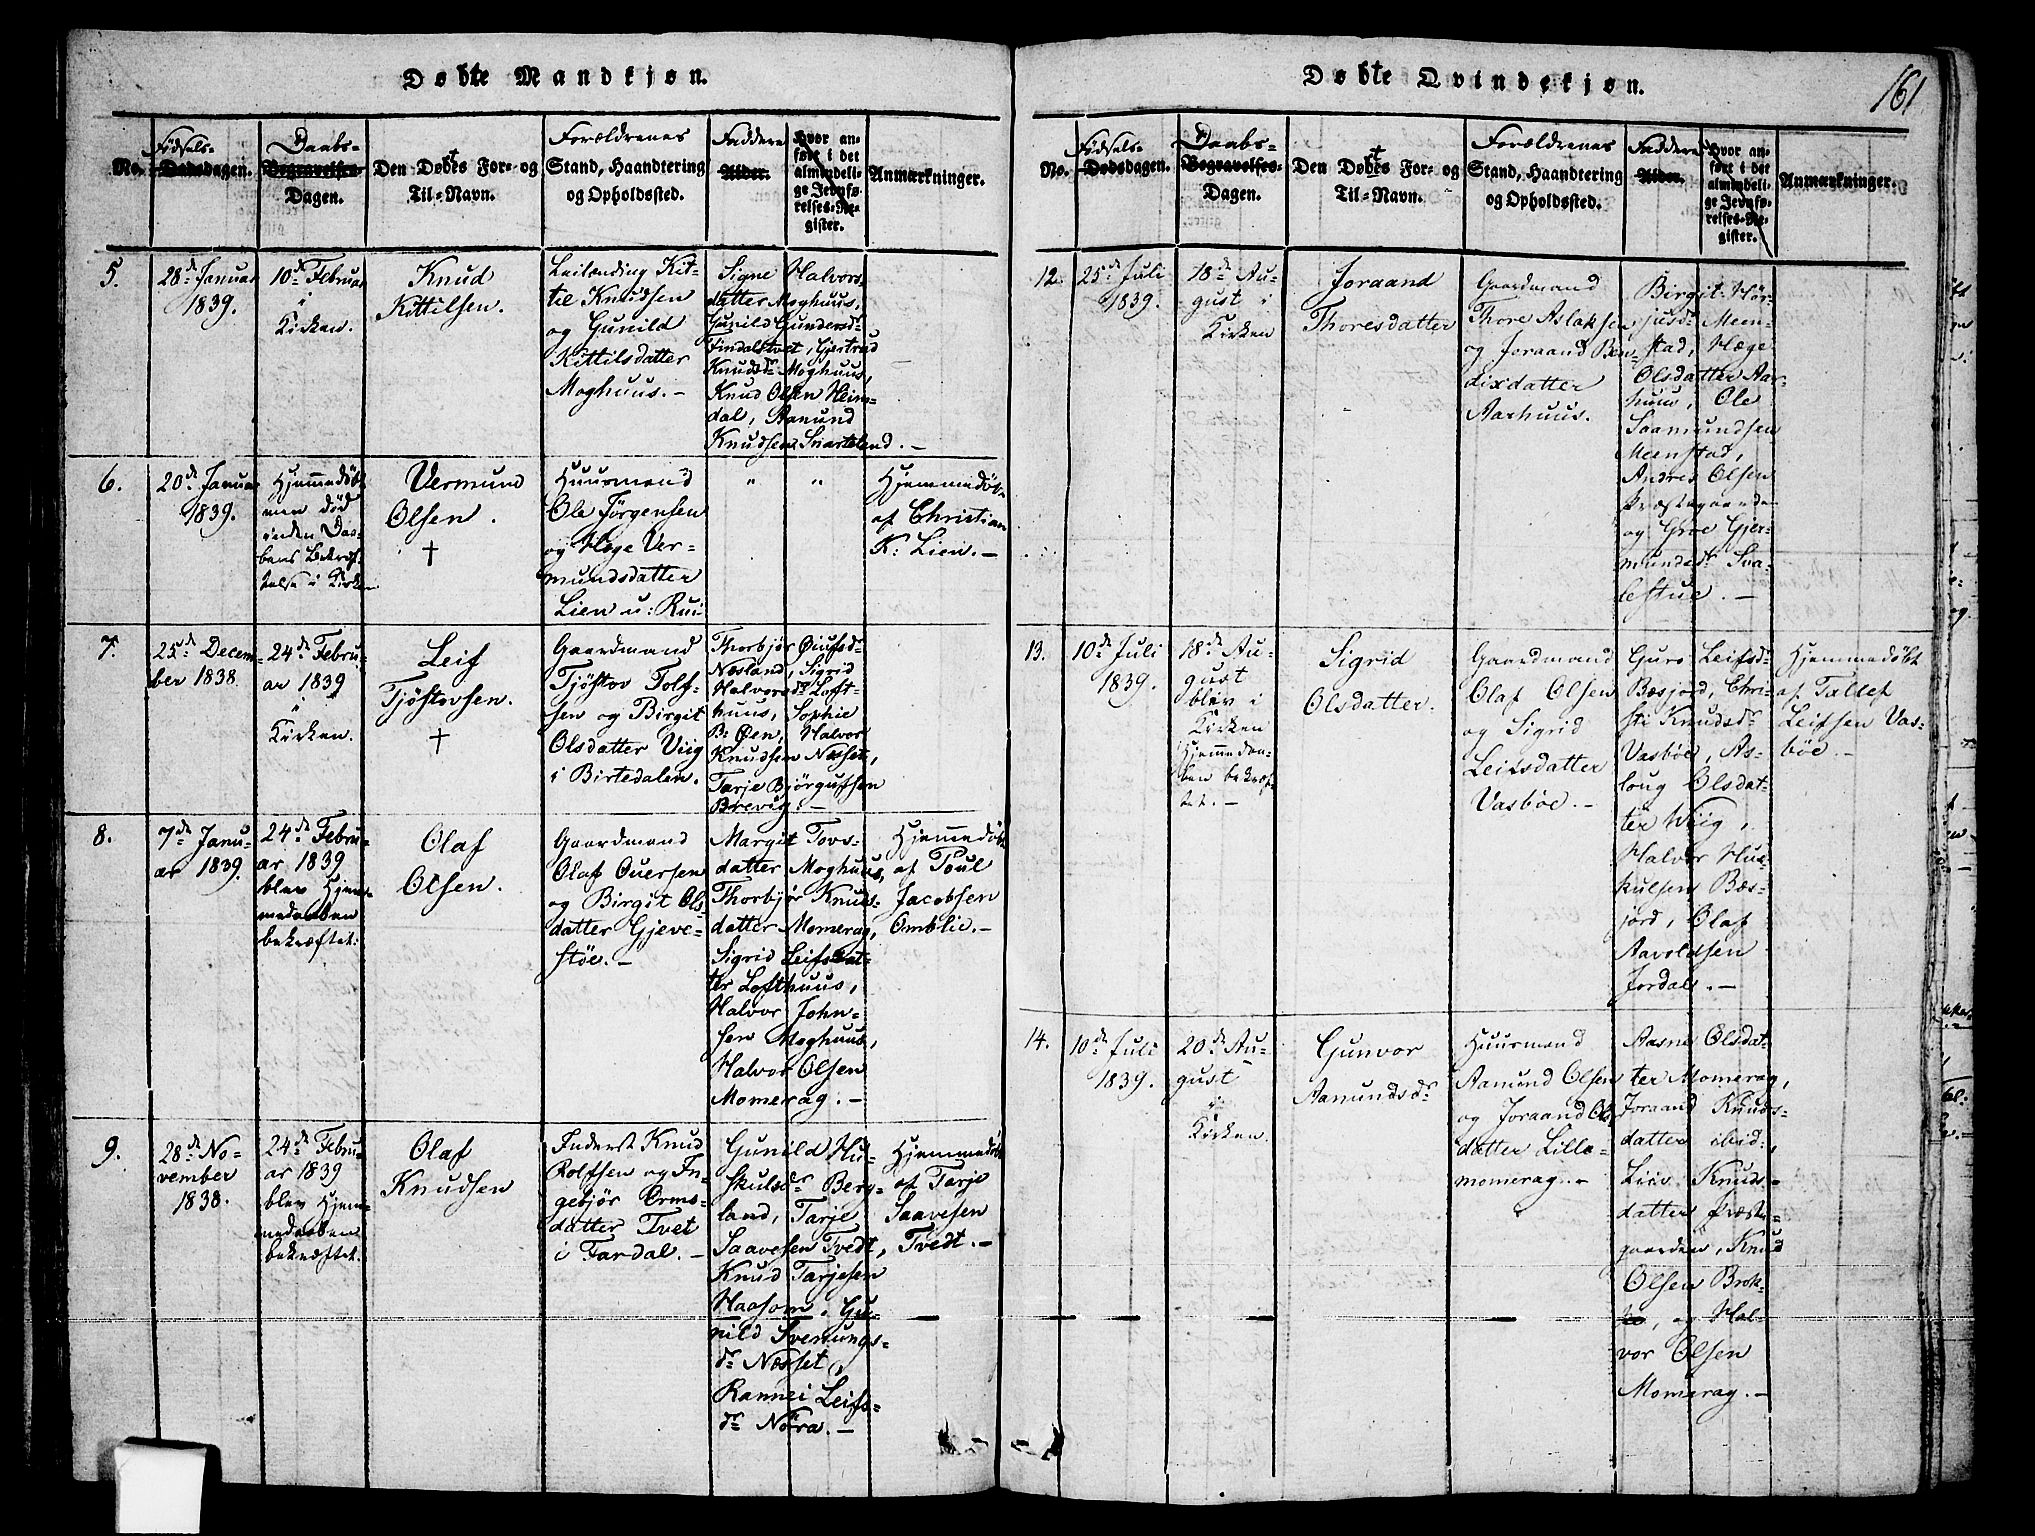 Døbte Mandkjøn.
No.
Fødsels-
Dødsdagen.
Daabs-
Begravelses-
Dagen.
Den Døbtes For- og
Til-Navn.
Forældrenes
Stand, Haandtering
og Opholdssted.
Faddere
Alder.
Hvor an-
ført i det
almindeli-
ge Jevnfø-
relses-Re-
gister.
Anmærkninger.
5.
28de Januar
1839.
10de Februar
i
Kirken.
Knud
Kittilsen.
Leilænding Kit-
til Knudsen
og Gunild
Kittilsdatter
Moghuus.-
Signe Halvors-
datter Moghuus,
Gunild Gundersdr
Findalstvet, Gjertrud
Knudsdr Moghuus,
Knud Olsen Heim-
dal, Aamund
Knudsen Snarteland.-
6.
20de Januar
1839.
Hjemmedøbt
men død
inden Daa-
bens Bekræf-
telse i Kirken
Vermund
Olsen.
†
Huusmand
Ole Jørgensen
og Hæge Ver-
mundsdatter
Lien u: Rui-
" "
Hjemmedøbt
af Christian
K: Lien.-
7.
25de Decem-
ber 1838.
24de Febru-
ar 1839
i
Kirken.
Leif
Tjøstovsen.
†
Gaardmand
Tjøstov Tolf-
sen og Birgit
Olsdatter Viig
i Birtedalen.
Thorbjør Øiufsdr
Næsland, Sigrid
Halvorsdr Loft-
huus, Sophie
B: Øen, Halvor
Knudsen Næset,
Tarje Bjørgufsen
Brevig.-
8.
7de Janu-
ar 1839.
24de Febru-
ar 1839
blev Hjem-
medaaben
bekræftet.
Olaf
Olsen.
Gaardmand
Olaf Ouersen
og Birgit Ols-
datter Gjeve-
støe.-
Margit Tovs-
datter Moghuus,
Thorbjør Knuds-
datter Momerag,
Sigrid Leifsdat-
ter Lofthuus,
Halvor John-
sen Moghuus,
Halvor Olsen
Momerag.-
Hjemmedøbt
af Poul
Jacobsen
Omblie.-
9.
28de No-
vember
1838.
24de Febru-
ar 1839
blev Hjem-
medaaben
bekræftet.
Olaf
Knudsen
Inderst Knud
Rolfsen og In-
gebjør Orms-
datter Tvet
i Fardal.-
Gunild Hu-
skulsdr Berg-
land, Tarje
Saavesen Tvedt,
Knud Tarjesen
Haasom, Gu-
nild Svenungs-
dr Næsset,
Rannei Leifs-
dr Nøra.-
Hjemmedøbt
af Tarje
Saavesen
Tvedt.-
Døbte Qvindekjøn.
161
No.
Fødsels-
Dødsdagen.
Daabs-
Begravelses-
Dagen.
Den Døbtes For- og
Til-Navn.
Forældrenes
Stand, Haandtering
og Opholdssted.
Faddere
Alder.
Hvor an-
ført i det
almindeli-
ge Jevnfø-
relses-Re-
gister.
Anmærkninger.
12.
25de Juli
1839.
18de Au-
gust i
Kirken
Joraand
Thoresdatter
Gaardmand
Thore Aslaksen
og Joraand Ben-
dixdatter
Aarhuus.
Birgit Hør-
jusdr Meen-
stad, Hæge
Olsdatter Aar-
huus, Ole
Saamundsen
Meenstad,
Andres Olsen
Præstegaarden
og Groe Gjer-
mundsdr Sva-
lestue.-
13.
10de Juli
1839.
18de Au-
gust
blev i
Kirken
Hjemmedaa-
ben bekræf-
tet.-
Sigrid
Olsdatter.
Gaardmand
Olaf Olsen
og Sigrid
Leifsdatter
Vasbøe.-
Guro Leifsdr
Bæsjord, Chri-
sti Knudsdr
Vasbøe, As-
loug Olsdat-
ter Wiig,
Halvor Hus-
kulsen Bæs-
jord, Olaf
Aavoldsen
Jordal.-
Hjemmedøbt
af Tallef
Leifsen Vas-
bøe.-
14.
10de Juli
1839.
20de Au-
gust
i
Kirken.
Gunvor
Aamundsdr
Huusmand
Aamund Olsen
og Joraand Ols-
datter Lille-
momerag.-
Aasne Olsdat-
ter Momerag,
Joraand Knuds-
datter ibid:,
Liv Knuds-
datter Præste-
gaarden, Knud
Olsen Brok-
ke, og Hal-
vor Olsen
Momerag.-